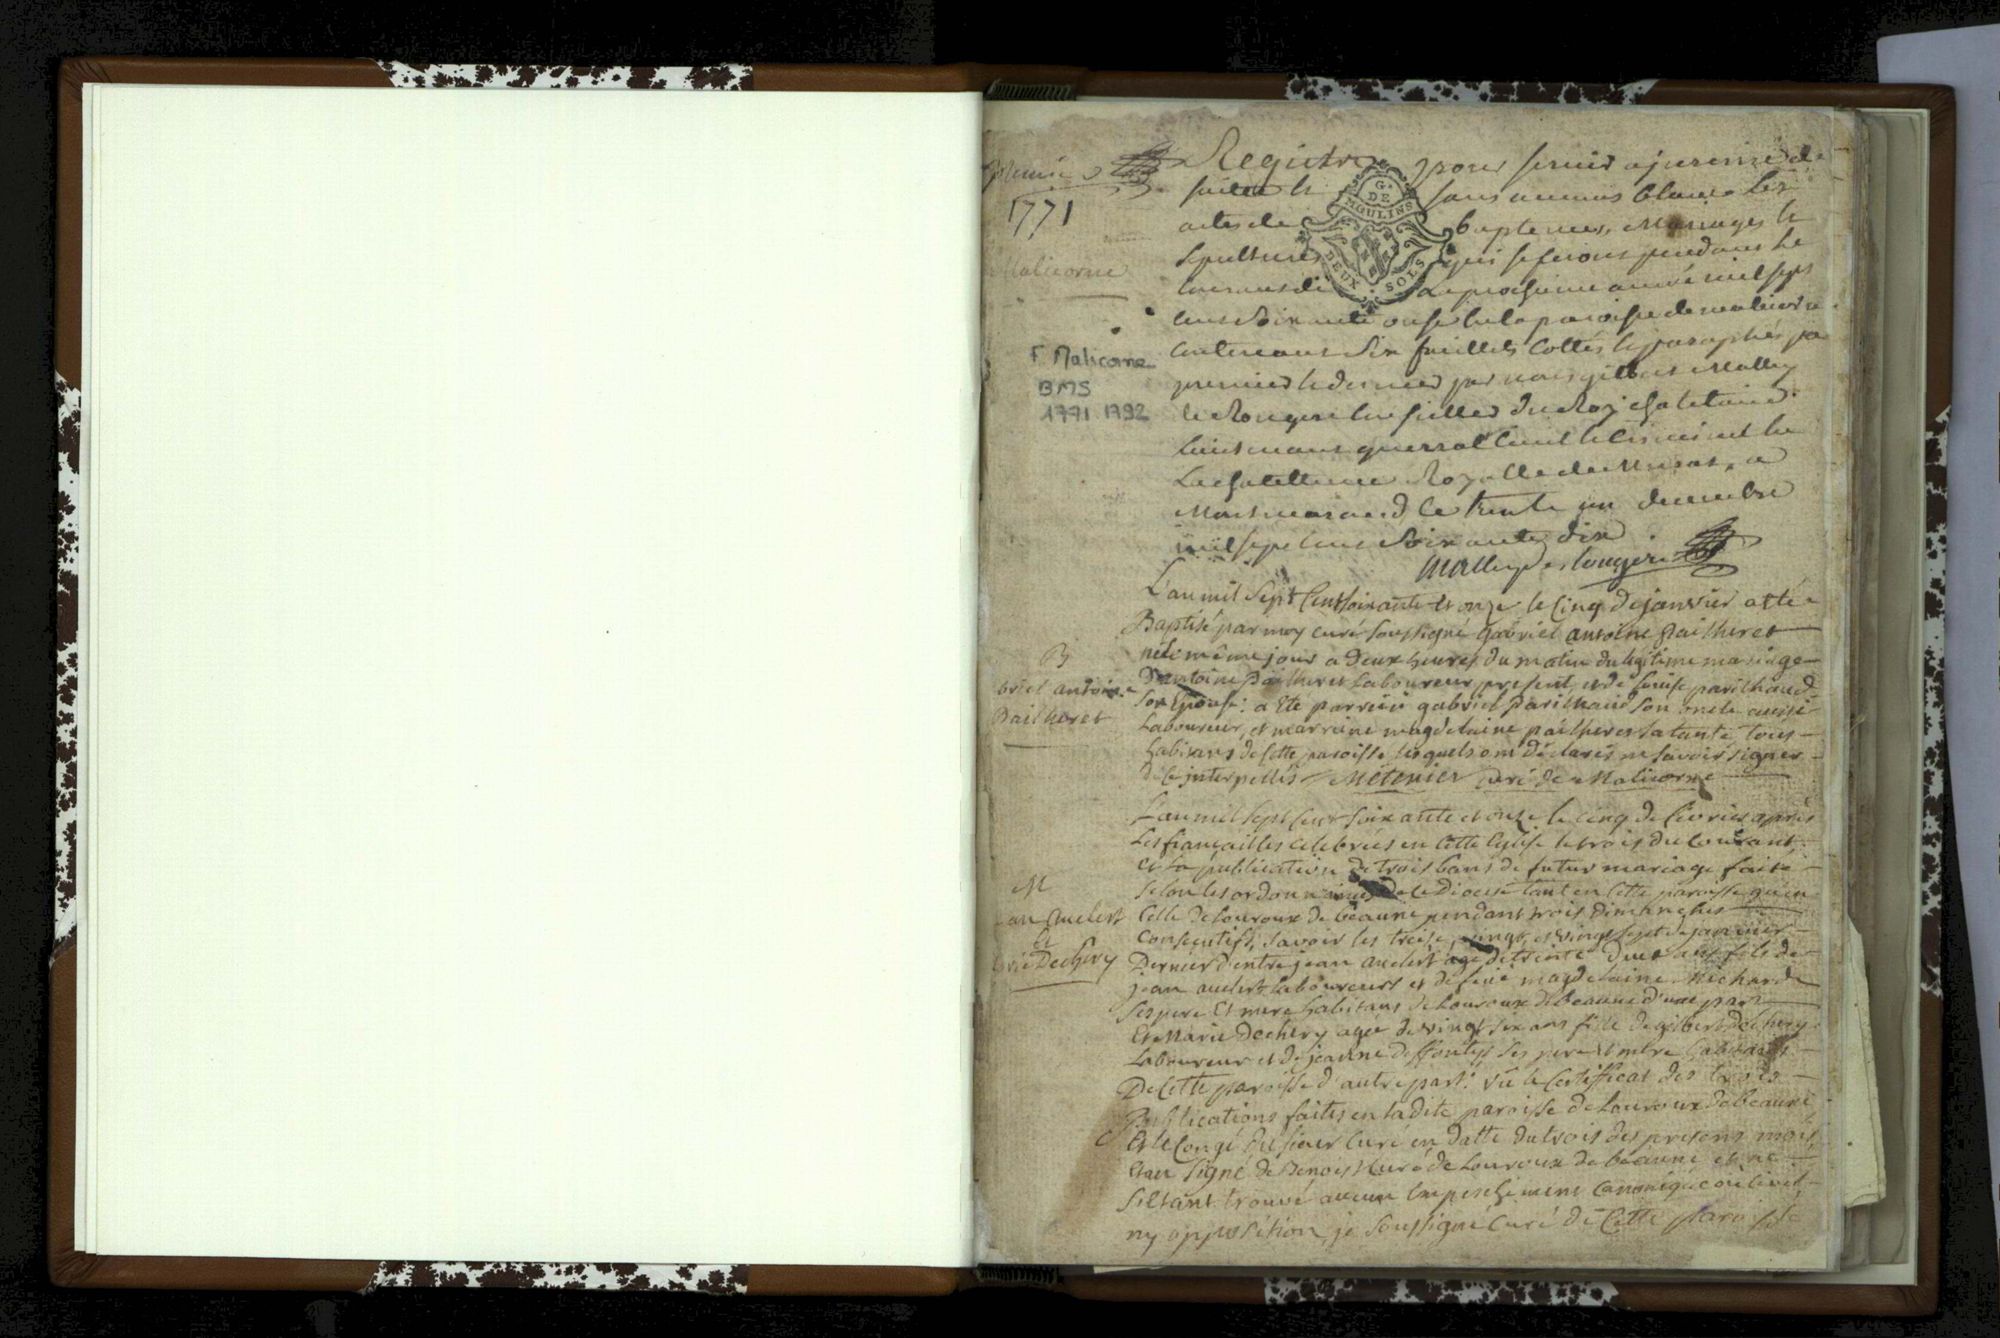 premier
1771
Malicorne
F. Malicorne
BMS
1771 1792
Registre pour servir a
sans aucuns blancs les
actes de baptemes, Mariages &
Sepultures qui se feront pendant le
La prochaine année mil sept
cent soixante onse en la paroisse de malicorne
Contenant Six feuillets Cottés & paraphés par
premier & dernier par nous gilbert Mallez
du Roy chatelain
Lieutenant general Civil & Criminel
La chatellenie Royalle de Murat, a
Montmaraud le trente un decembre
mil sept cent Soixante dix
G. DE MOULINS
DEUX SOLS
L'an mil Sept Cent soixante et onze le Cinq de janvier a été
Baptisé par moy curé soussigné gabriel antoine Pailheret
né le même jour a deux heures du matin du legitime mariage
D'antoine Pailheret Laboureur present, et de
Son Epouse: a Eté parrein gabriel Son oncle aussi
Laboureur, et marreine magdelaine pailheret sa tante tous
habitans de Cette paroisse lesquels ont déclarés ne savoir signer
de ce interpellés Metenier curé de Malicorne
B
briel antoine
Pailheret
L'an mil sept Cent soixante et onze le cinq de fevrier après
Les fiançailles celebrées en Cette Eglise le trois du Courant,
et La publication de trois bans de futur mariage faite
Selon les ordonnances de Ce Diocese tant en Cette paroisse qu'en
Celle de Louroux de beaune pendant trois dimanches
Consecutifs, Savoir les treize, vingt, et vingt sept de janvier
Dernier d'entre jean auclert agé de trente Deux ans fils de
jean auclert laboureur et de feue magdelaine Michard
Ses pere Et mere habitans de Louroux de beaune d'une part
Et Marie Dechery agée de vingt six ans fille de gilbert Dechery
Laboureur et de jeanne Ses pere et mere habitans
De Cette paroisse d'autre part: vû le Certifficat des trois
Publications faites en ladite paroisse de Louroux de beaune
Et le Congé du sieur Curé en Datte du trois du present mois,
Signé de Benoist Curé de Louroux de beaune et ne
S'étant trouvé aucun Empeschement Canonique ou Civil,
ny opposition, je soussigné Curé de Cette paroisse
M
an Auclert
&
rie Dechery